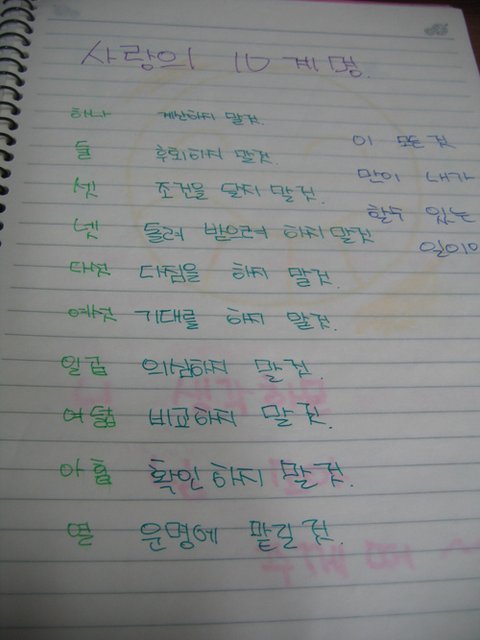 사랑의 10계명.
하나 계산하지 말것.
둘 후회하지 말것.
셋 조건을 달지 말것.
넷 돌려 받으려 하지말것
다섯 다짐을 하지 말것.
여섯 기대를 하지 말것.
일곱 의심하지 말것.
여덟 비교하지 말것.
아홉 확인하지 말것.
열 운명에 맡길것.
이 모든것
만이 내가
할수 있는